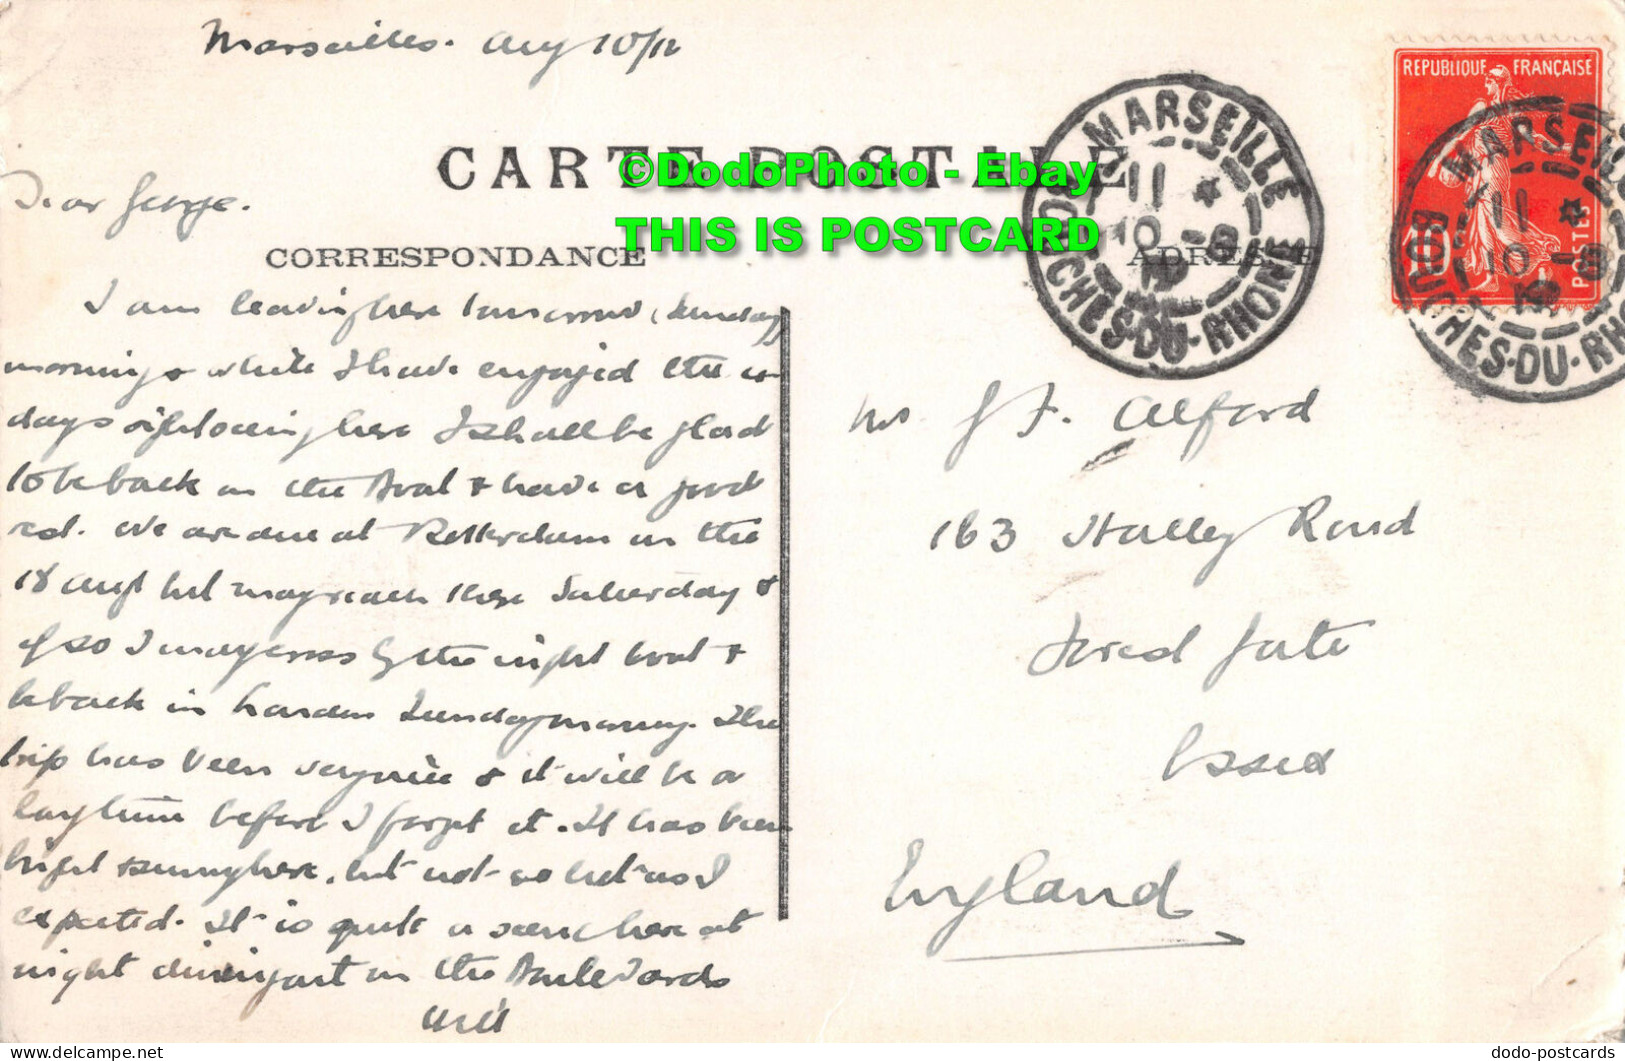 Marseilles. Aug 10/12
CARTE POSTALE
©DodoPhoto - Ebay
THIS IS POSTCARD
Dear George.
CORRESPONDANCE
ADRESSE
I am leaving here tomorrow (Sunday
morning & while I have enjoyed the
days sightseeing here I shall be glad
to be back on the boat & have a good
rest. We are due at Rotterdam on the
18 Augt but may reach there Saturday &
if so I may cross by the night boat &
be back in London Sunday morning. The
trip has been very nice & it will be a
long time before I forget it. It has been
bright & sunny here, but not so hot as I
expected. It is quite a scene here at
night dining out on the Boulevards
Will
Mr G F. Alford
163 Halley Road
Forest Gate
Essex
England
REPUBLIQUE FRANÇAISE
10
POSTES
MARSEILLE
11 *
10 -8
12
BOUCHES-DU-RHONE
MARSEILLE
11 *
10 -8
12
BOUCHES-DU-RHONE
dodo-postcards